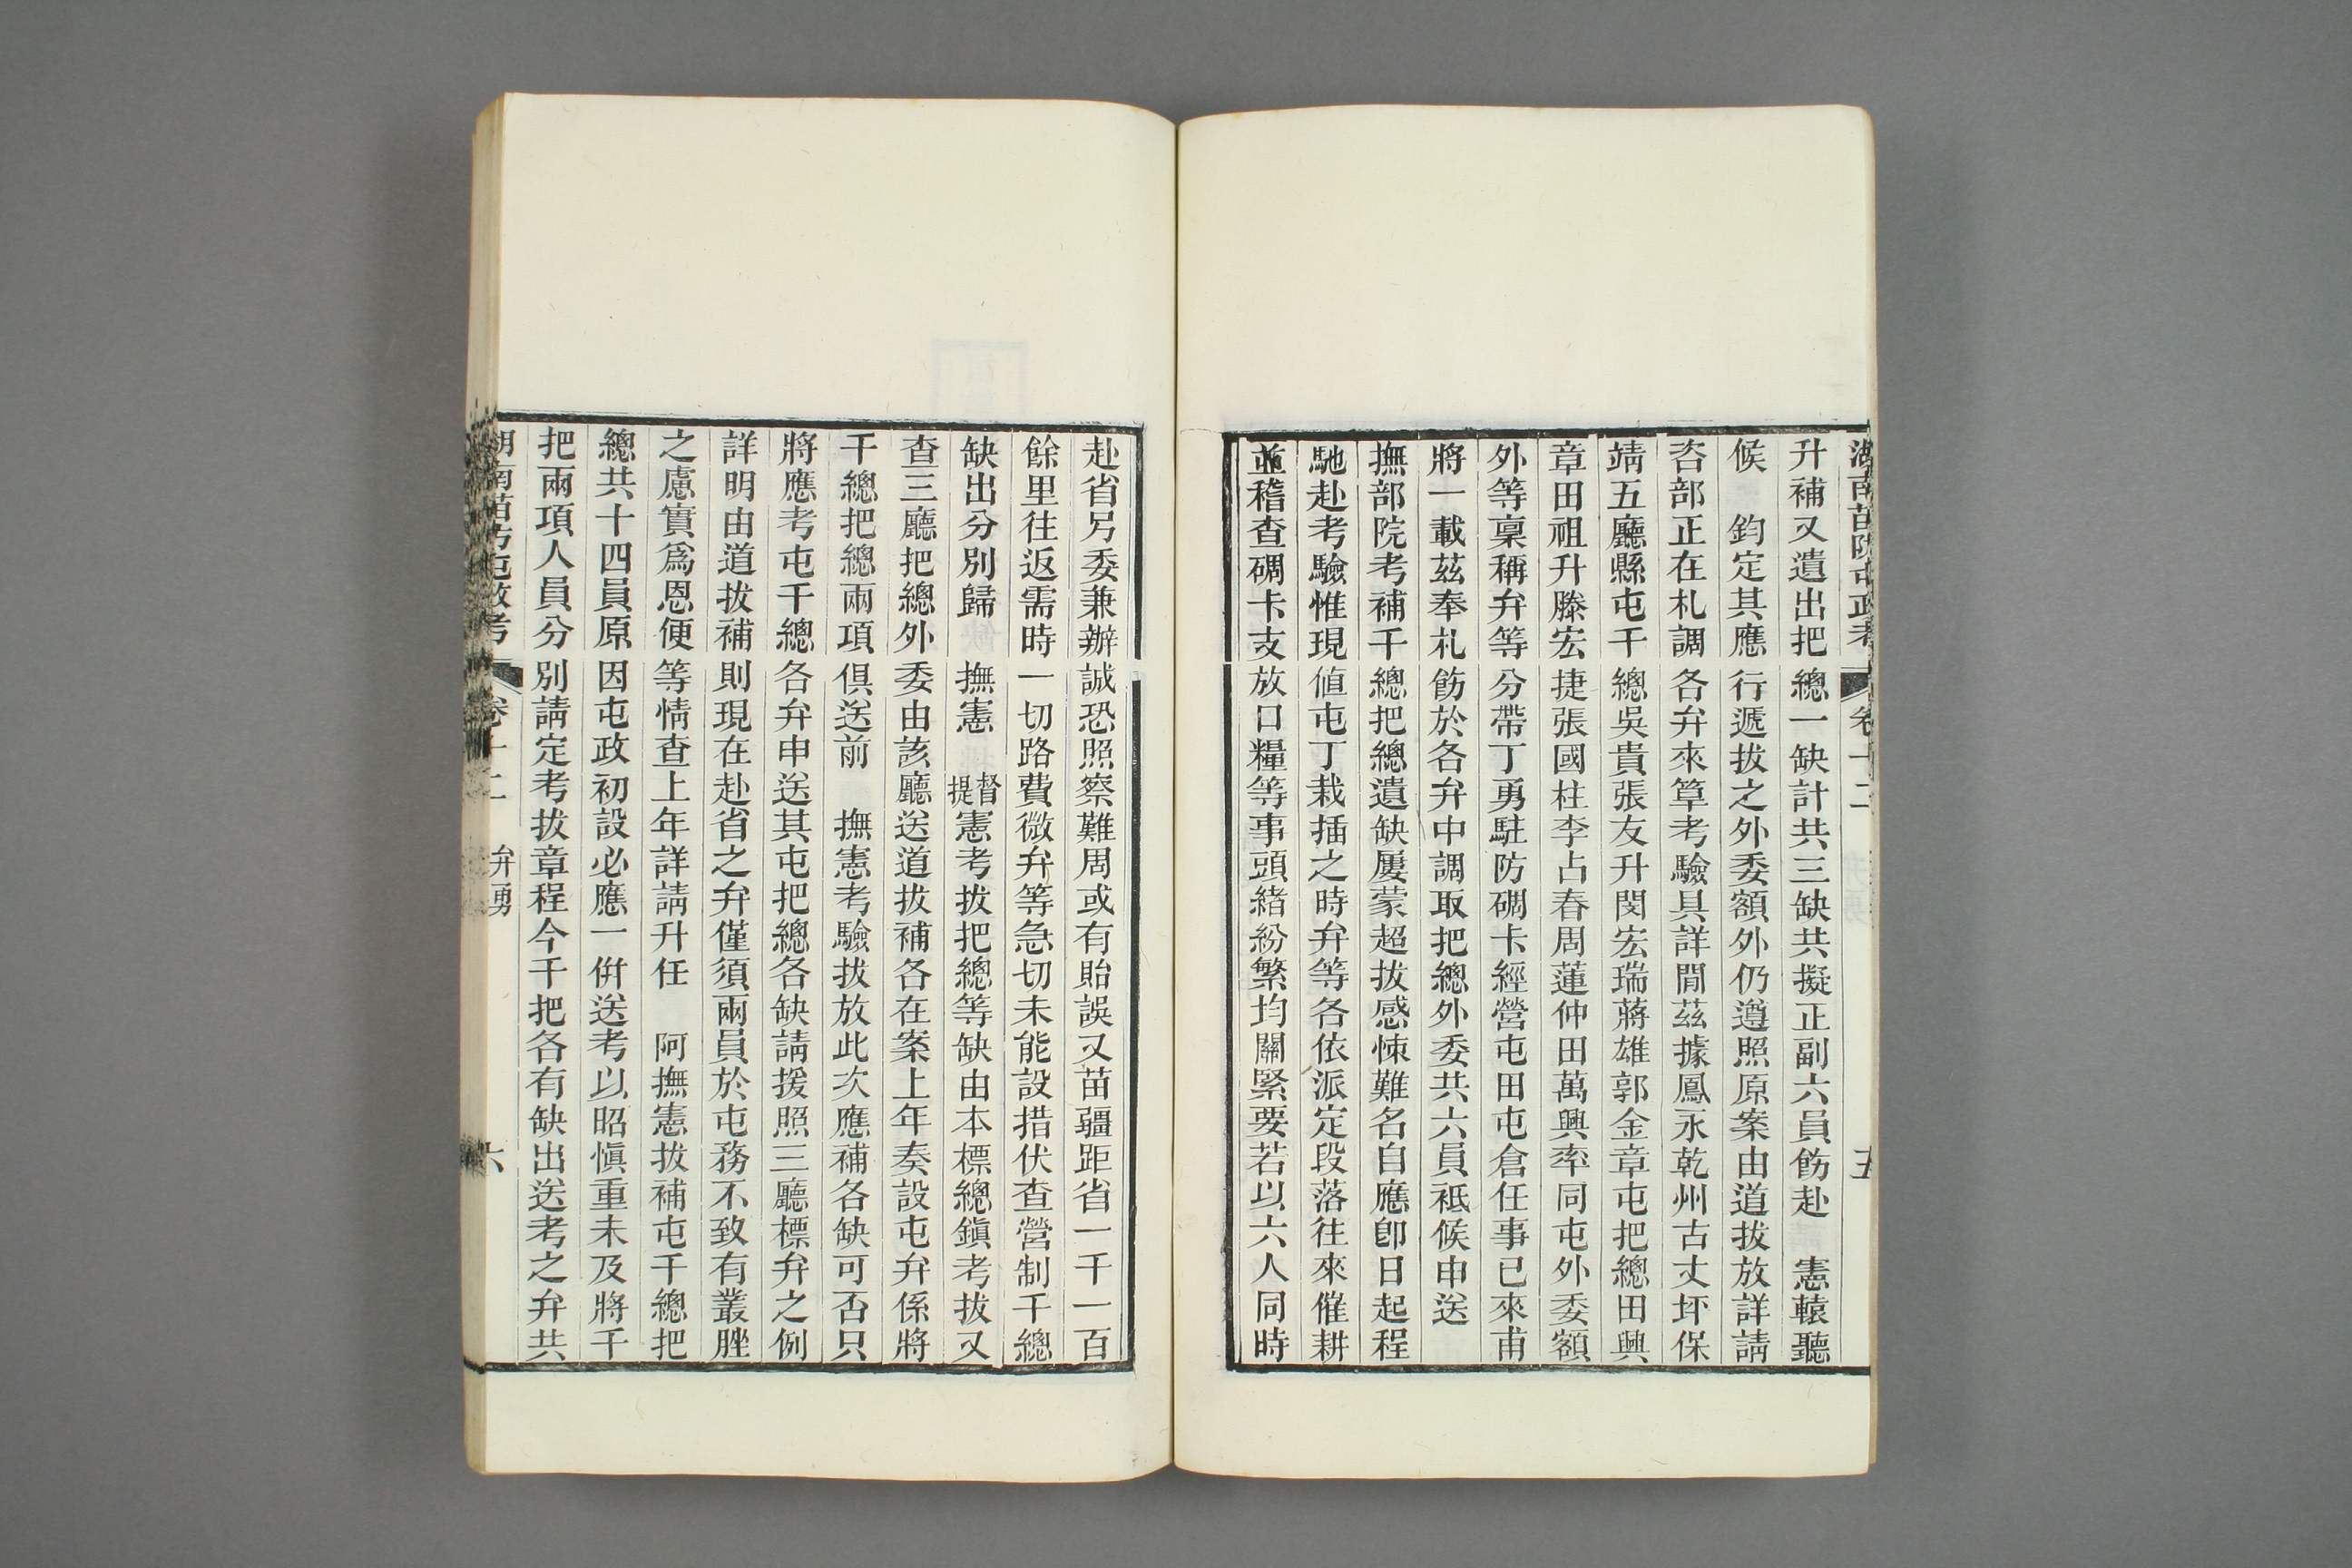 湖南苗防屯政考 卷十二 五
升補又遺出把總一缺計共三缺共擬正副六員飭赴 憲轅聽
候 鈞定其應行遞拔之外委額外仍遵照原案由道拔放詳請
咨部正在札調各弁來箪考驗具詳閒茲據鳳永乾州古丈坪保
靖五廳縣屯千總吳貴張友升閔宏瑞蔣雄郭金章屯把總田興
章田祖升滕宏捷張國柱李占春周蓮仲田萬興率同屯外委額
外等稟稱弁等分帶丁勇駐防碉卡經營屯田屯倉任事已來甫
將一載茲奉札飭於各弁中調取把總外委共六員祗候申送
撫部院考補千總把總遺缺屢蒙超拔感悚難名自應卽日起程
馳赴考驗惟現值屯丁栽插之時弁等各依派定段落往來催耕
並稽查碉卡支放口糧等事頭緒紛繁均關緊要若以六人同時
赴省另委兼辦誠恐照察難周或有貽誤又苗疆距省一千一百
餘里往返需時一切路費微弁等急切未能設措伏查營制千總
缺出分別歸 撫憲 督提憲考拔把總等缺由本標總鎭考拔又
查三廳把總外委由該廳送道拔補各在案上年奏設屯弁係將
千總把總兩項俱送前 撫憲考驗拔放此次應補各缺可否只
將應考屯千總各弁申送其屯把總各缺請援照三廳標弁之例
詳明由道拔補則現在赴省之弁僅須兩員於屯務不致有叢脞
之慮實爲恩便等情查上年詳請升任 阿撫憲拔補屯千總把
總共十四員原因屯政初設必應一併送考以昭愼重未及將千
把兩項人員分別請定考拔章程今千把各有缺出送考之弁共
湖南苗防屯政考 卷十二 弁勇 六